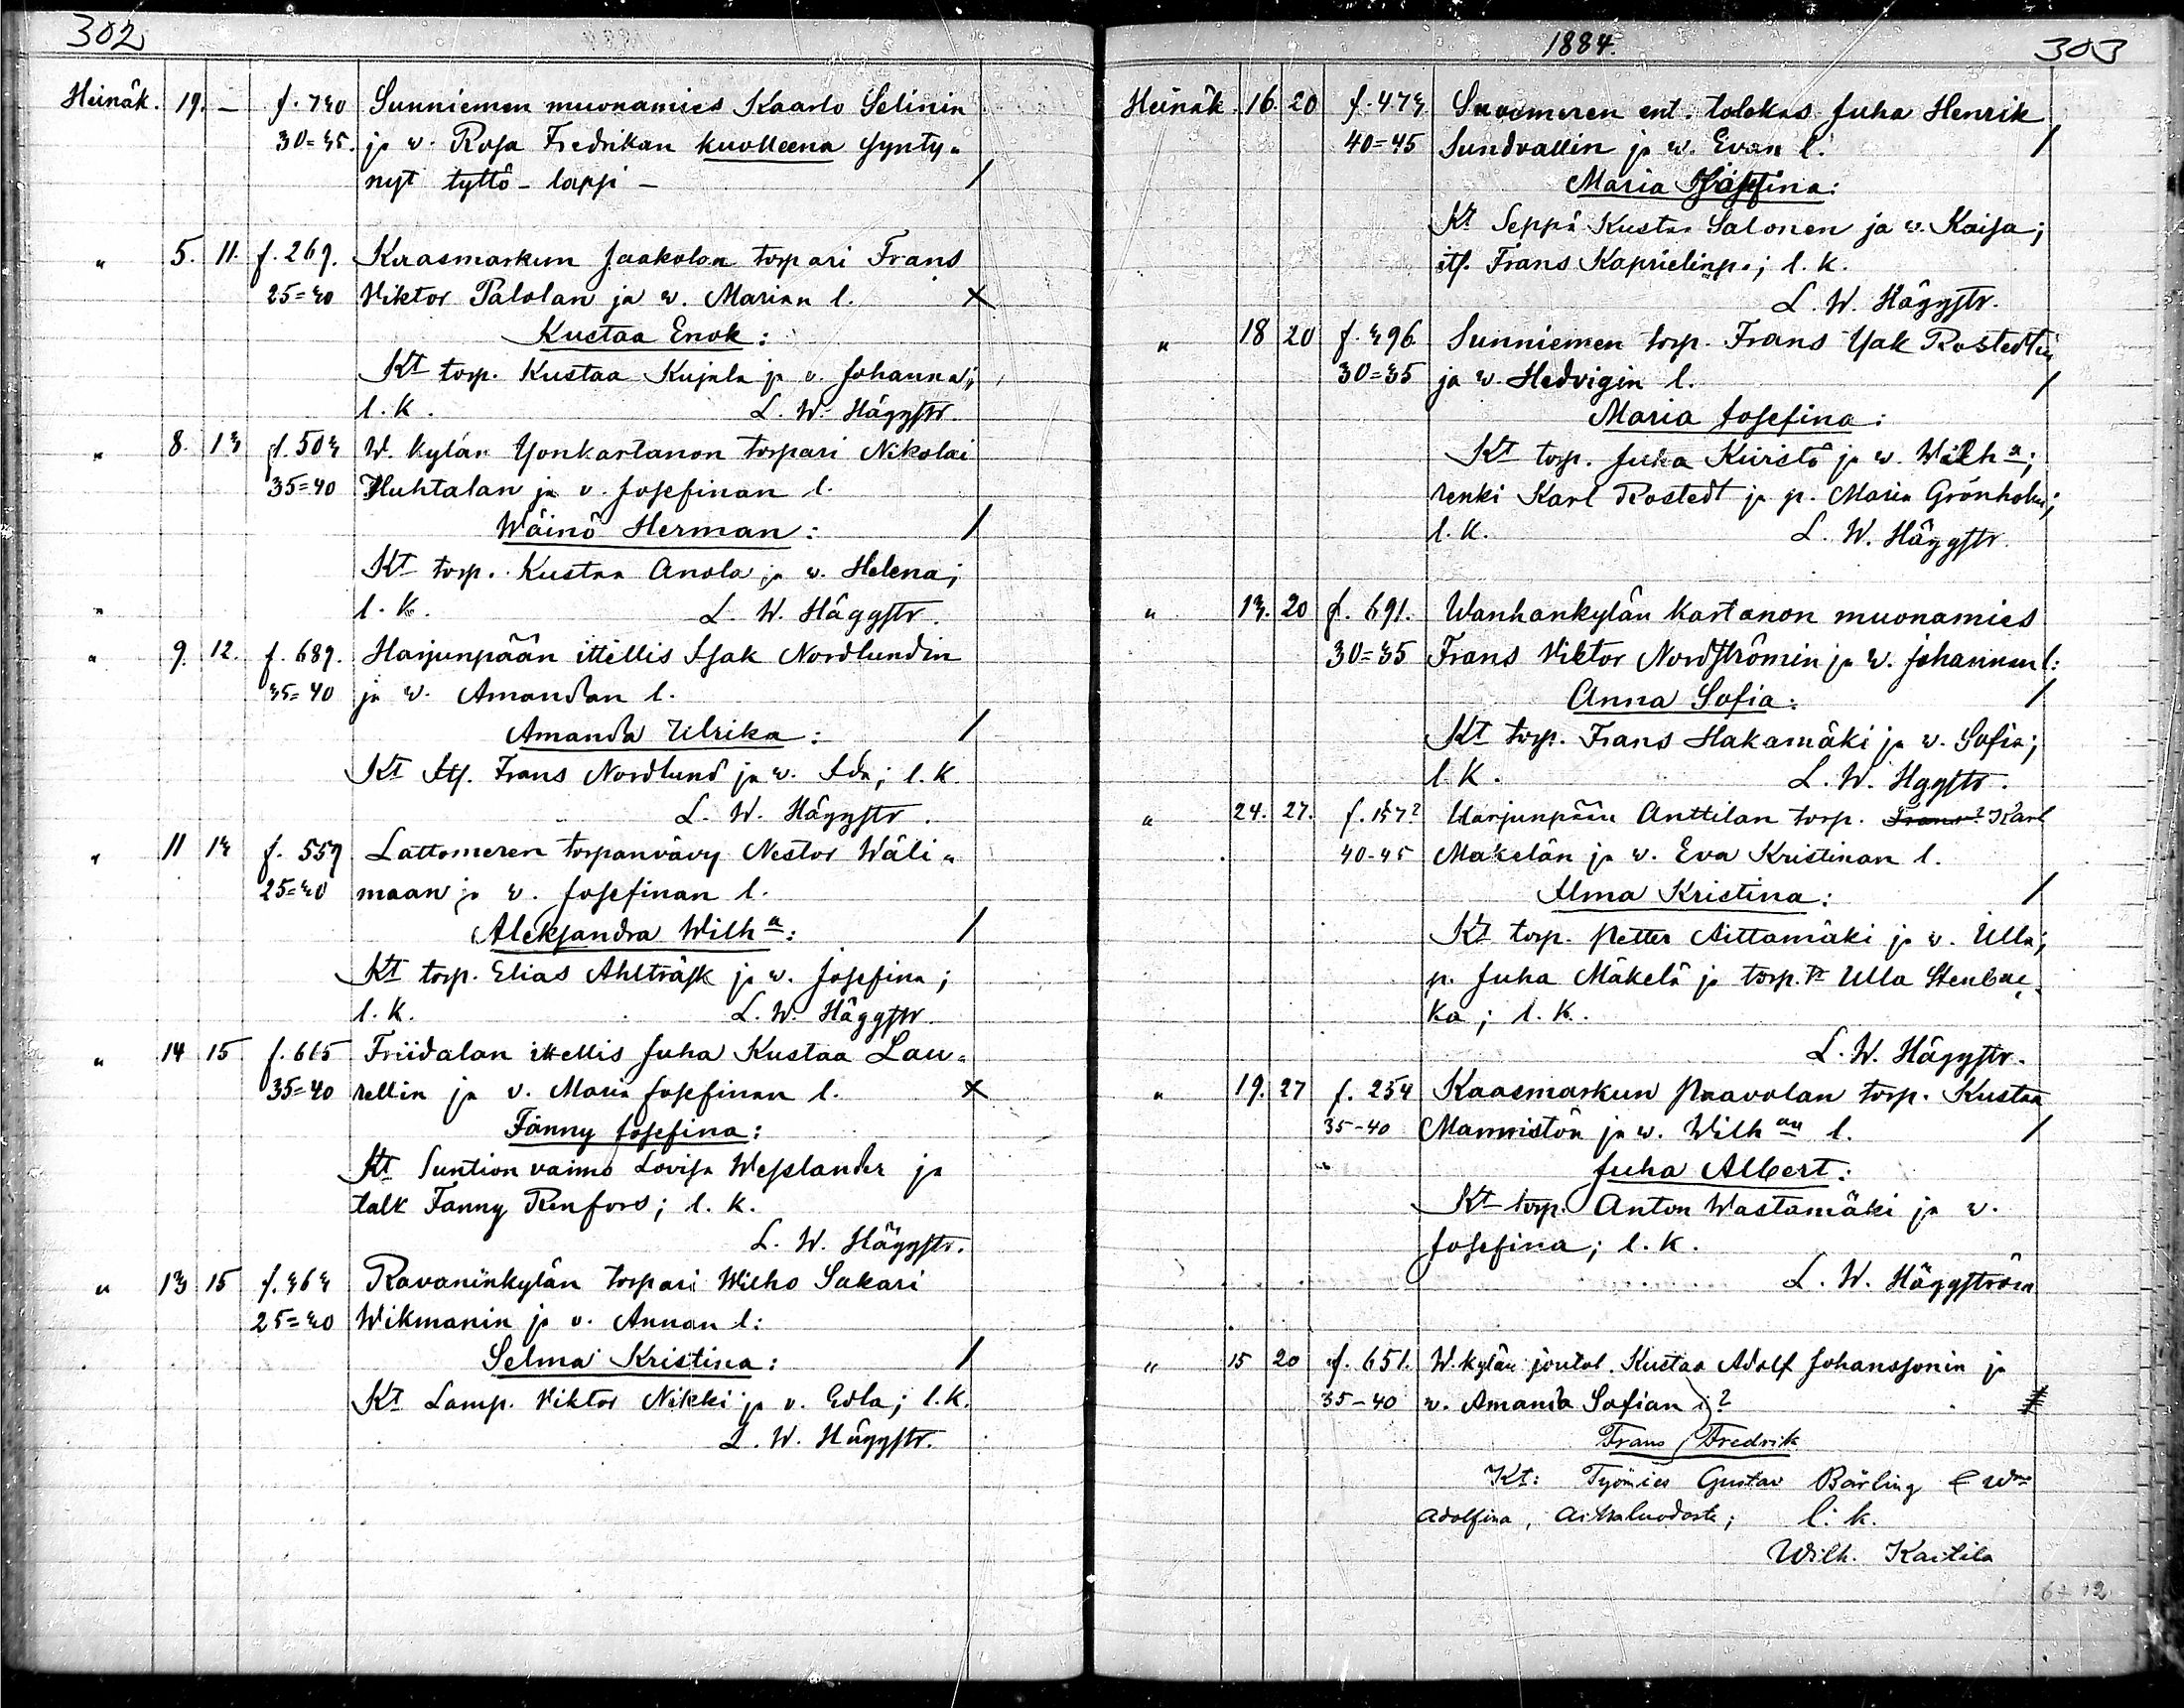 302
Heinäk. 19. — f. 740 Sunniemen muonamies Kaarlo Selinin
30=35. ja w. Rosa Fredrikan kuolleena synty„
nyt tyttö-lapsi — /
„ 5. 11. f. 269. Kaasmarkun Jaakolan torpari Frans
25=30 Viktor Palolan ja w. Marian l. x
Kustaa Enok:
Kt torp. Kustaa Kujala ja v. Johanna;
l. k. L. W. Häggstr.
„ 8. 13 f. 503 W. kylän Yonkartanon torpari Nikolai
35=40 Huhtalan ja v. Josefinan l.
Wäinö Herman: /
Kt torp. Kustaa Anola ja w. Helena;
„ l. k. L. W. Häggstr.
„ 9. 12. f. 689. Harjunpään itellis Isak Nordlundin
35=40 ja w. Amandan l.
Amanda Ulrika: /
Kt Its. Frans Nordlund ja w. Ida; l. k.
L. W. Häggstr.
„ 11 13 f. 559 Lattomeren torpanvävy Nestor Wäli„
25=30 maan ja v. Josefinan l.
Aleksandra Wilha: /
Kt torp. Elias Ahlträsk ja w. Josefina;
l. k. L. W. Häggstr.
„ 14 15 f. 615 Friidalan itellis Juha Kustaa Lau„
35=40 rellin ja v. Maria Josefinan l. x
Fanny Josefina:
Kt Suntion vaimo Lovisa Wesslander ja
talk Fanny Renfors; l. k.
L. W. Häggstr.
„ 13 15 f. 363 Ravaninkylän torpari Wilho Sakari
25=30 Wikmanin ja v. Annan l:
Selma Kristina: /
Kt Lamp. Viktor Nikki ja v. Edla; l. k.
L. W. Häggstr.
1884. 303
Heinäk. 16. 20 f. 473 Suosmeren ent. talokas Juha Henrik
40=45 Sundvallin ja w. Evan l. /
Maria Josefina:
Kt Seppä Kustaa Salonen ja w. Kaisa;
its. Frans Kaprielinp.; l. k.
L. W. Häggstr.
„ 18 20 f. 396 Sunniemen torp. Frans Isak Rostedtin
30=35 ja w. Hedvigin l. /
Maria Josefina:
Kt torp. Juha Kiirstö ja w. Wilha;
renki Karl Rostedt ja p. Maria Grönholm;
l. k. L. W. Häggstr.
„ 13. 20 f. 691. Wanhankylän kartanon muonamies
30=35 Frans Viktor Nordströmin ja w. Johannan l:
Anna Sofia: /
Kt torp. Frans Hakamäki ja w. Sofia;
l. k. L. W. Hggstr.
„ 24. 27. f. 157? Harjunpään Anttilan torp. Frans? Karl
40-45 Makelän ja w. Eva Kristinan l.
Ilma Kristina: /
Kt torp. Petter Aittamäki ja w. Ulla;
p. Juha Mäkelä ja torp. tr Ulla Stenbac„
ka; l. k.
L. W. Häggstr.
„ 19. 27 f. 254 Kaasmarkun Paavolan torp. Kustaa
35-40 Manniston ja w. Wilhan l. /
Juha Albert:
Kt torp. Anton Wastamäki ja w.
Josefina; l. k.
L. W. Häggström
„ 15 20 f. 651. W. kylän joutol. Kustaa Adolf Johanssonin ja
35-40 w. Amanda Sofian ?
Frans Fredrik
Kt: Työmies Gustav Bärling & wmo
Adolfina, l. k.
Wilh. Kaitila